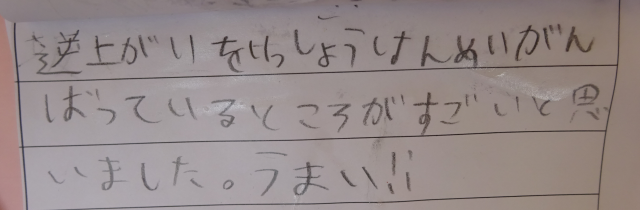 逆上がりをいっしょうけんめいがん
ばっているところがすごいと思
いました。うまい!!